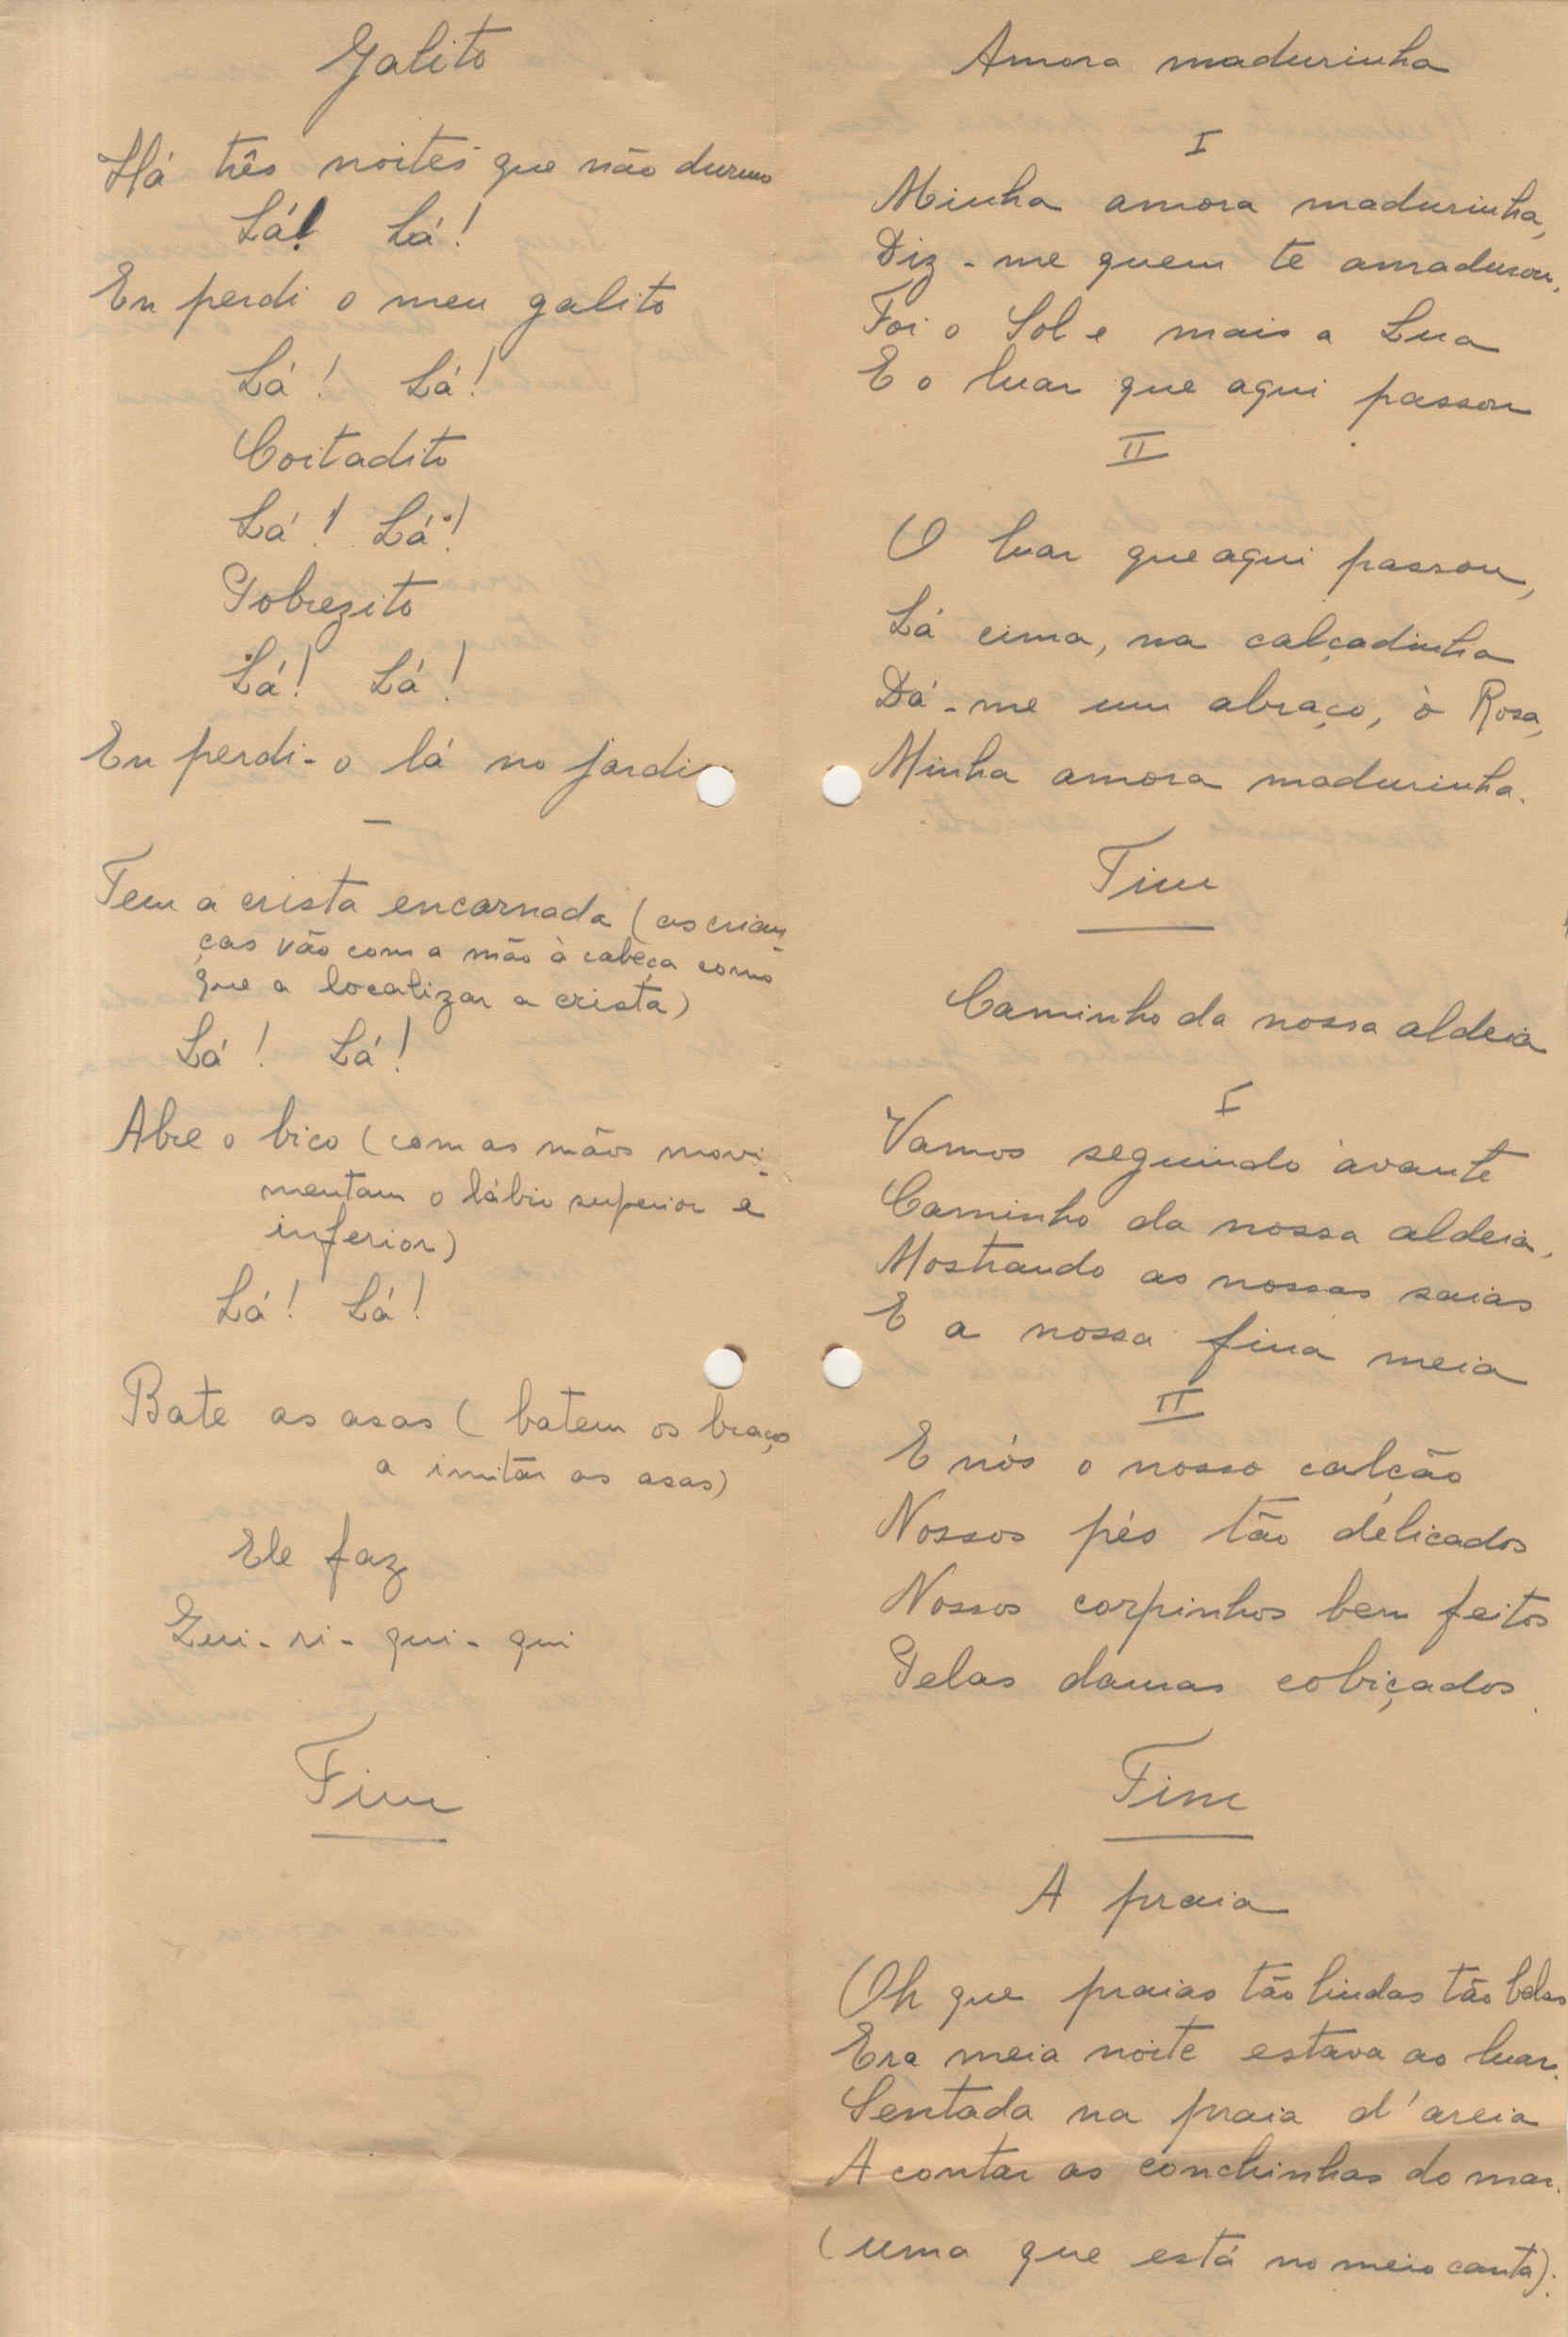 Galito
Há três noites que não durmo
Lá! Lá!
Eu perdi o meu galito
Lá! Lá!
Coitadito
Lá! Lá!
Pobrezito
Lá! Lá!
Eu perdi-o lá no jardim
—
Tem a crista encarnada (as crian-
ças vão com a mão à cabeça como
que a localizar a crista)
Lá! Lá!
Abre o bico (com as mãos movi-
mentam o lábio superior e
inferior)
Lá! Lá!
Bate as asas (batem os braços
a imitar as asas)
Ele faz
Qui-ri-qui-qui
Fim
Amora madurinha
I
Minha amora madurinha,
Diz-me quem te amadurou,
Foi o Sol e mais a Lua
E o luar que aqui passou
II
O luar que aqui passou,
Lá cima, na calçadinha
Dá-me um abraço, ó Rosa,
Minha amora madurinha.
Fim
Caminho da nossa aldeia
I
Vamos seguindo àvante
Caminho da nossa aldeia,
Mostrando as nossas saias
E a nossa fina meia
II
E nós o nosso calção
Nossos pés tão delicados
Nossos corpinhos bem feitos
Pelas damas cobiçados.
Fim
A praia
Oh que praias tão lindas tão belas
Era meia noite estava ao luar.
Sentada na praia d'areia
A contar as conchinhas do mar.
(uma que está no meio canta):